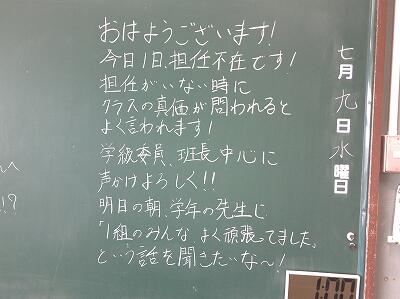 おはようございます!
今日1日、担任不在です!
担任がいない時に
クラスの真価が問われると
よく言われます!
学級委員、班長中心に
声かけよろしく!!
明日の朝、学年の先生に
「1組のみんな、よく頑張ってました。」
という話を聞きたいな〜!
七月九日水曜日
!?
1:00